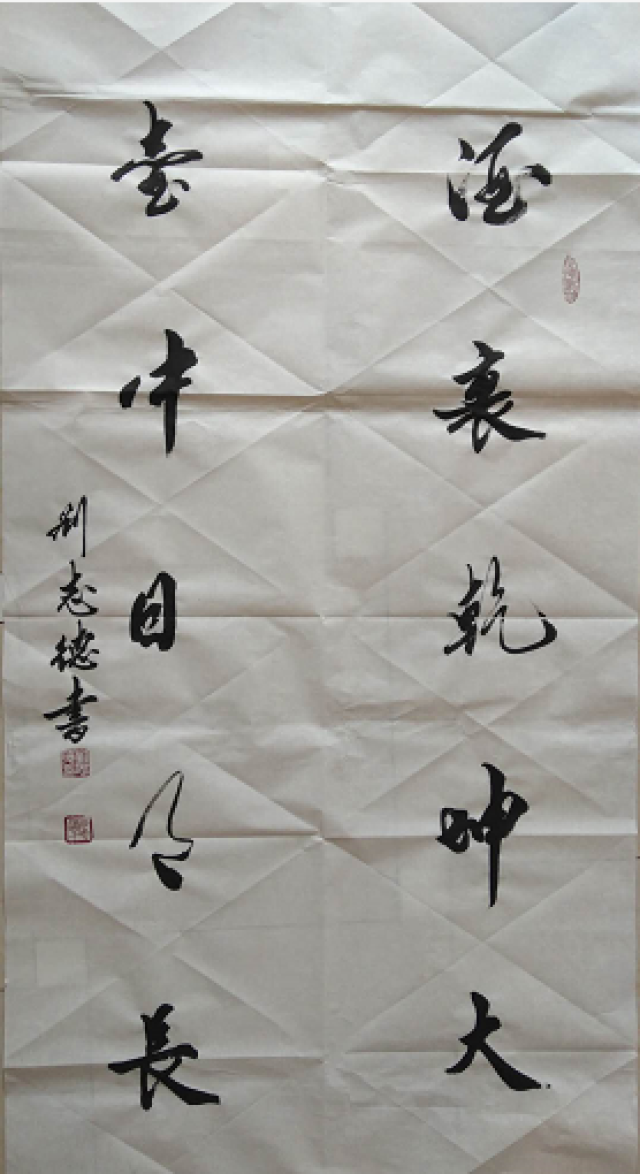 酒裏乾坤大
壺中日月長
志德書